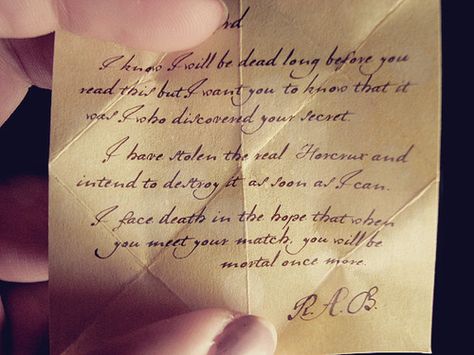 rd
I know I will be dead long before you
read this but I want you to know that it
was I who discovered your secret
I have stolen the real Horcrux and
intend to destroy it as soon as I can.
I face death in the hope that when
you meet your match, you will be
mortal once more.
R.A.B.